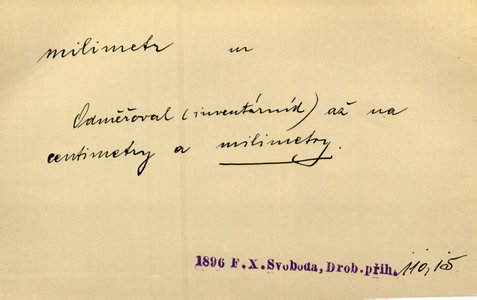 milimetr m
Odměřoval (inventárníd) až na
centimetry a milimetry.
1896 F. X. Svoboda, Drob. příh. 110, 15